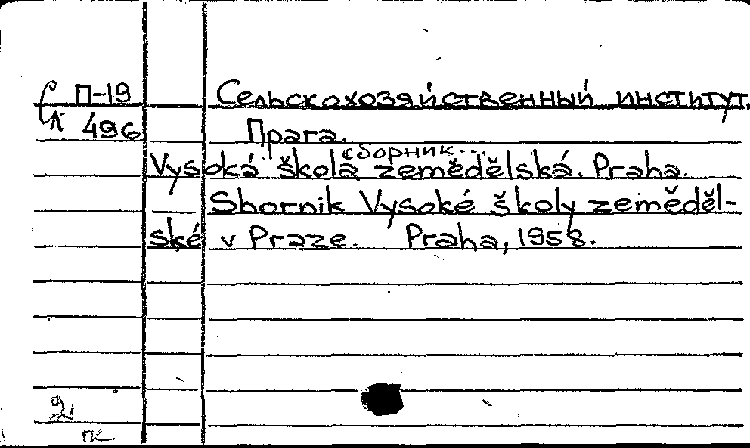 П-19 Сельскохозяйственный институт.
496 Прага.
сборник...
Vysoká škola zemědělská. Praha.
Sbornik Vysoké školy zeměděl-
ské v Praze. Praha, 1958.
пк